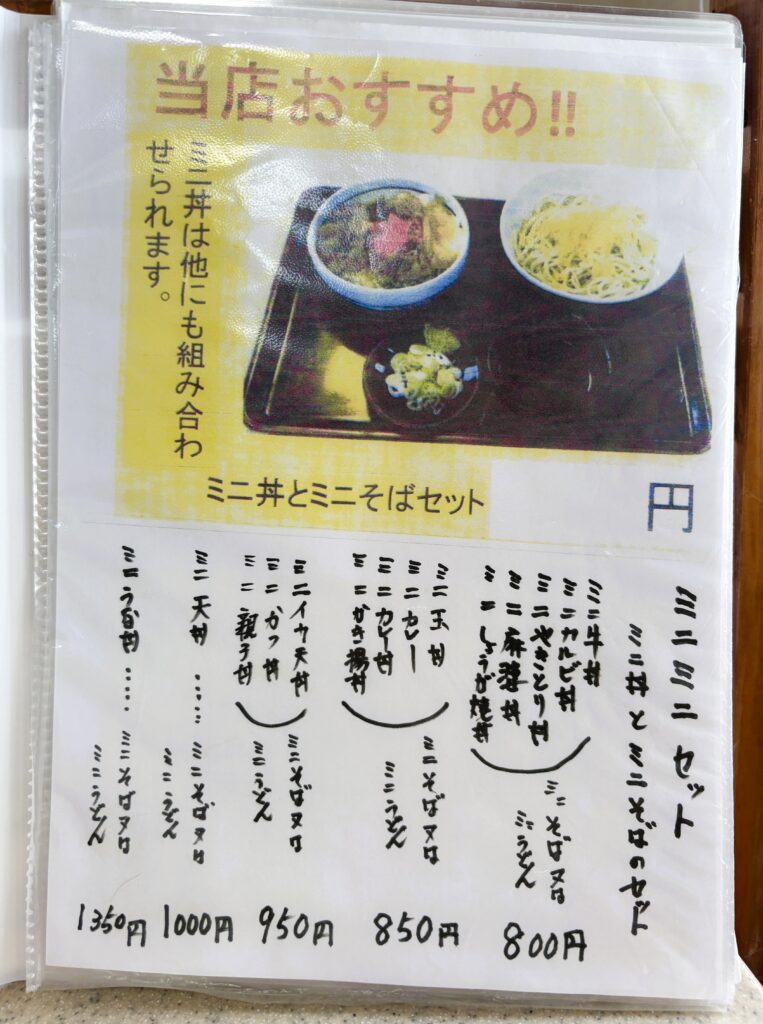 当店おすすめ!!
ミニ丼は他にも組み合わ
せられます。
ミニ丼とミニそばセット
円
ミニミニセット
ミニ丼とミニそばのセット
ミニ牛丼
ミニカルビ丼
ミニやきとり丼
ミニ麻婆丼
ミニしょうが焼丼
ミニそば又は
ミニうどん
800円
ミニ玉丼
ミニカレー
ミニカレー丼
ミニかき揚丼
ミニそば又は
ミニうどん
850円
ミニイカ天丼
ミニかつ丼
ミニ親子丼
ミニそば又は
ミニうどん
950円
ミニ天丼……ミニそば又は
ミニうどん
1000円
ミニうな丼……ミニそば又は
ミニうどん
1350円